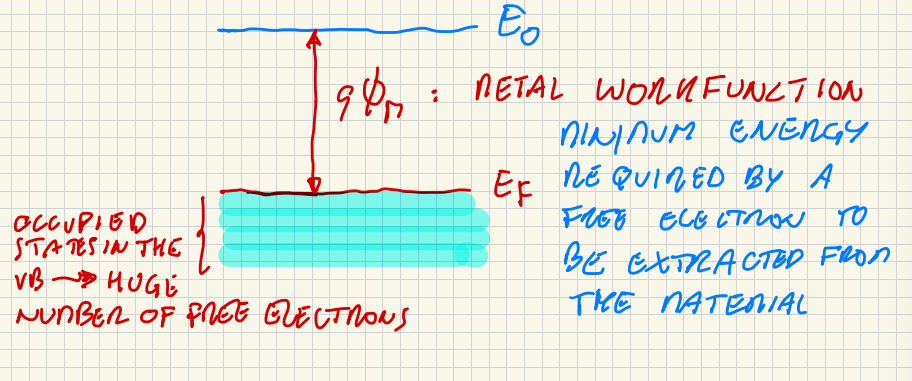 E₀
qϕₘ : METAL WORKFUNCTION
MINIMUM ENERGY
REQUIRED BY A
FREE ELECTRON TO
BE EXTRACTED FROM
THE MATERIAL
E_F
OCCUPIED
STATES IN THE
VB → HUGE
NUMBER OF FREE ELECTRONS